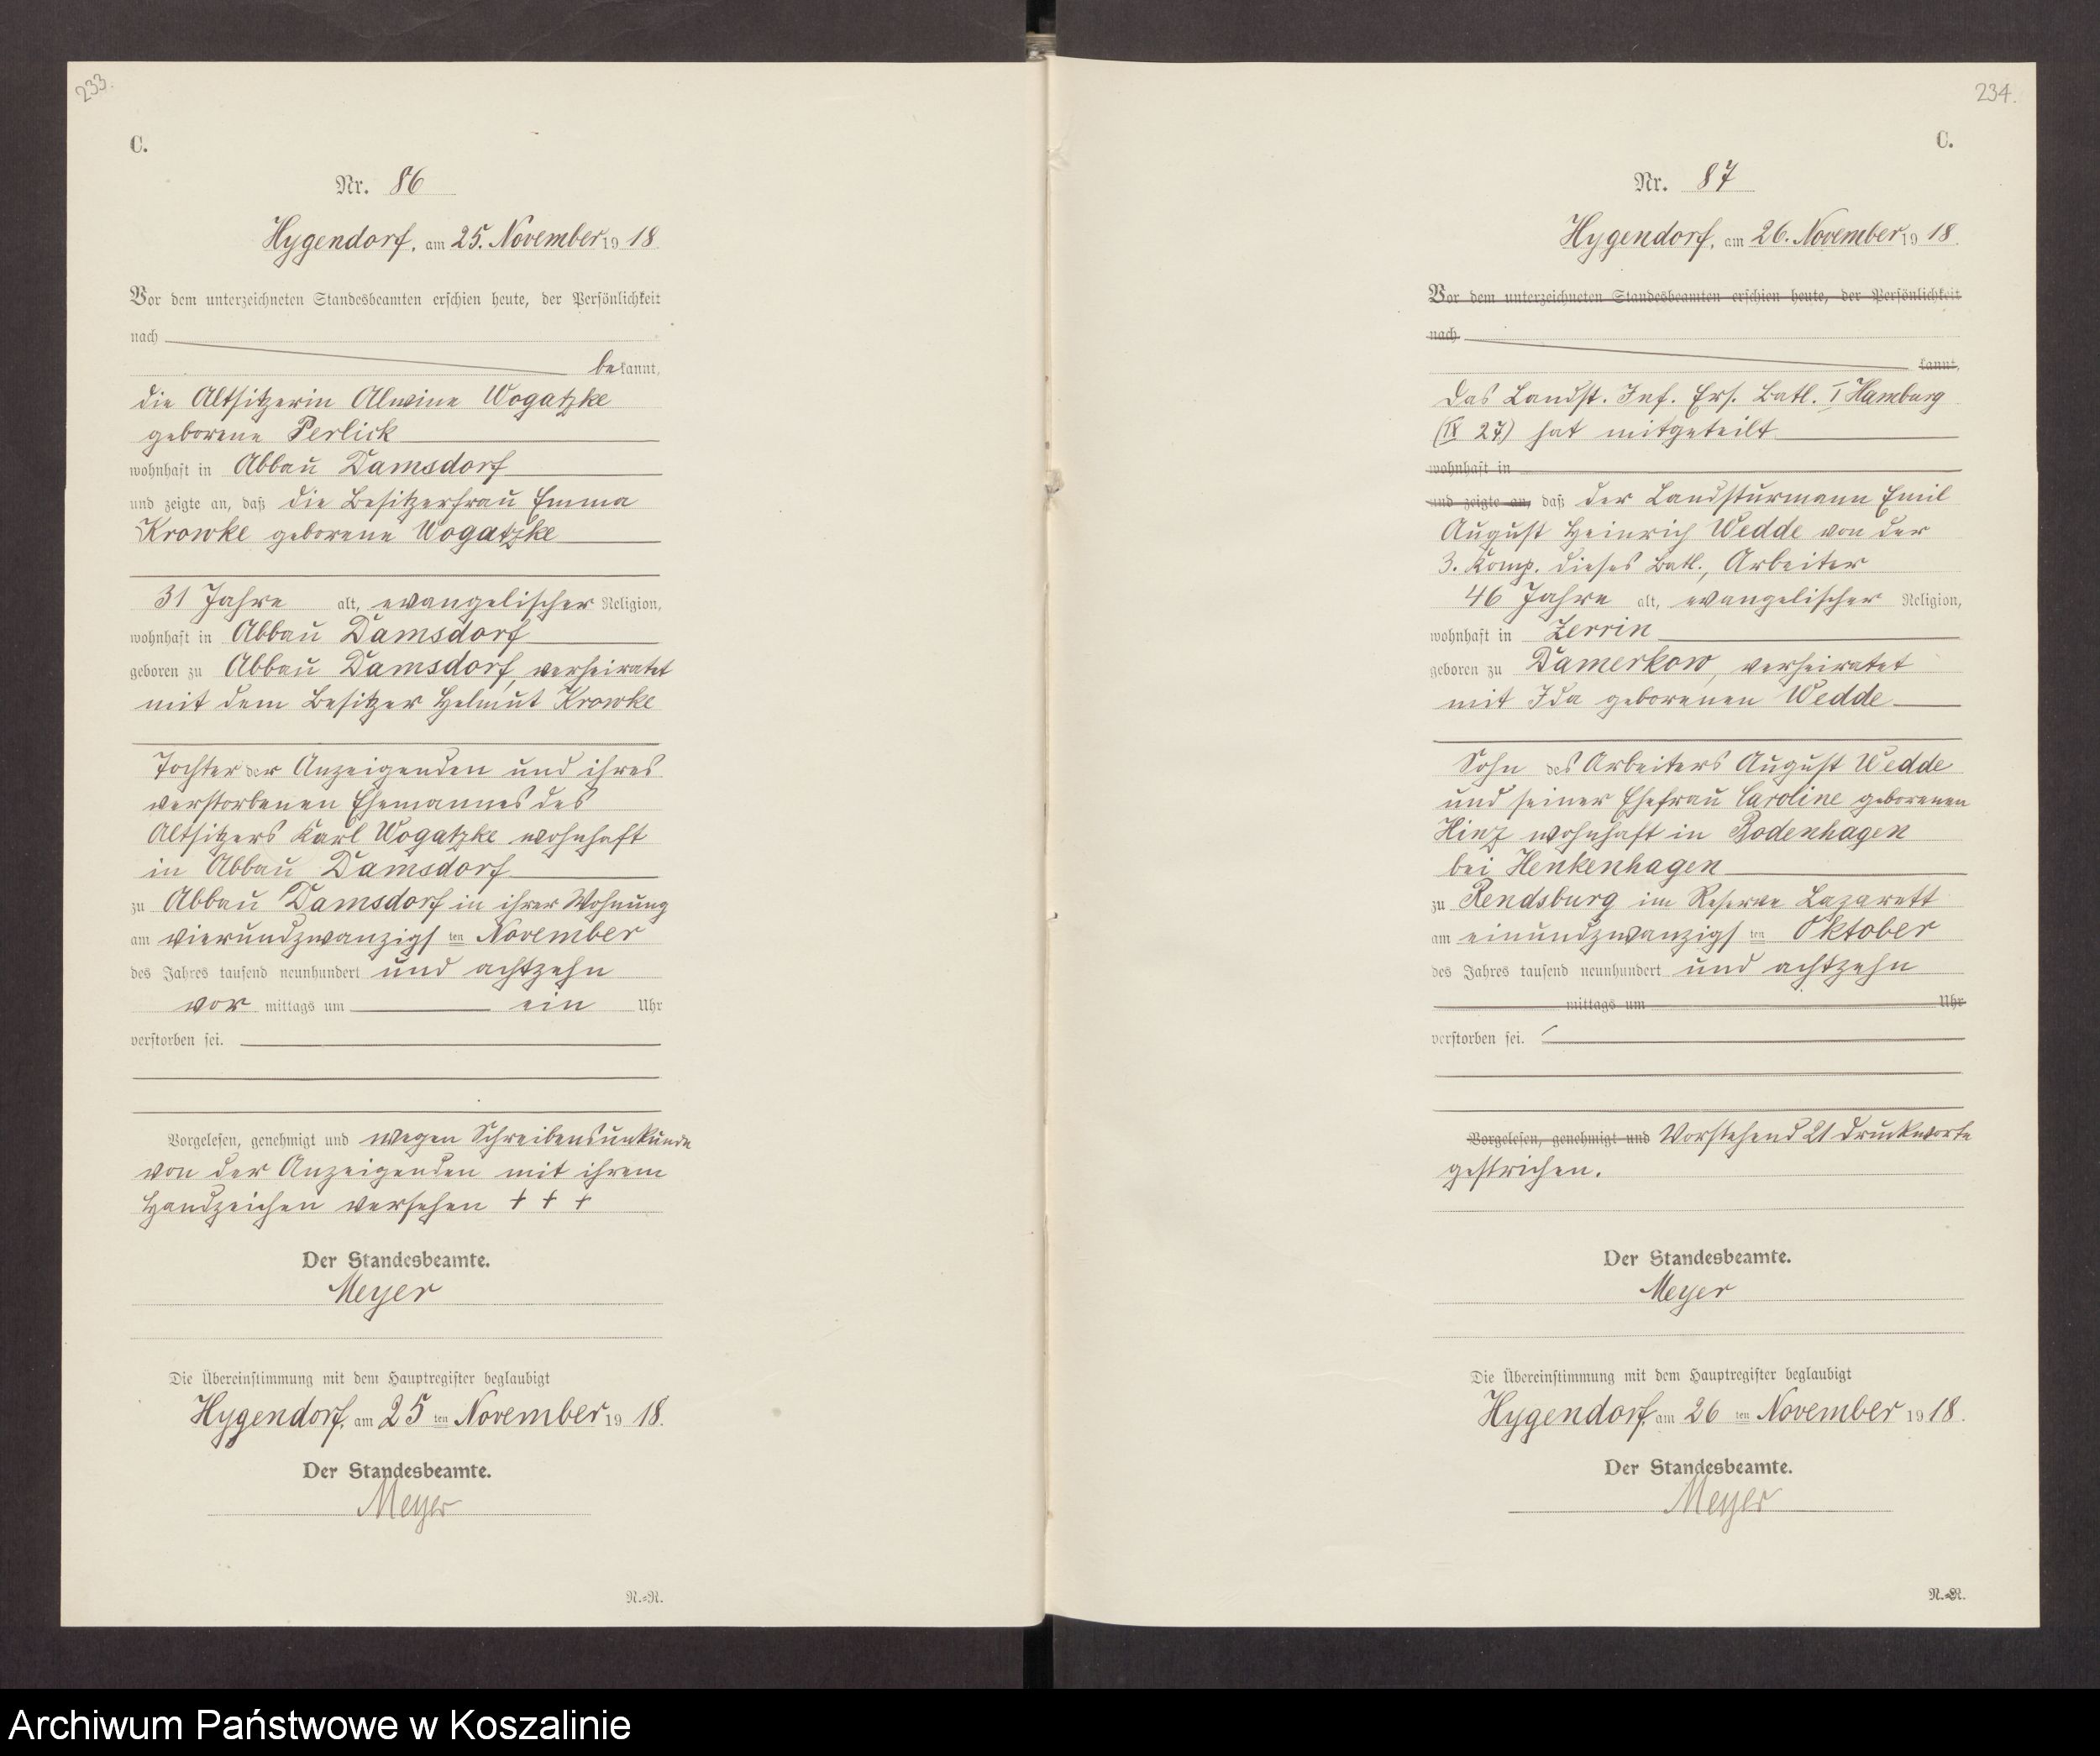 233.
C.
Nr. 86
Hygendorf, am 25. November 1918.
Vor dem unterzeichneten Standesbeamten erschien heute, der Persönlichkeit
nach
bekannt,
die Altsitzerin Alwine Wogatzke
geborene Perlick
wohnhaft in Abbau Damsdorf
und zeigte an, daß die Besitzerfrau Emma
Krowke geborene Wogatzke
31 Jahre alt, evangelischer Religion,
wohnhaft in Abbau Damsdorf
geboren zu Abbau Damsdorf, verheiratet
mit dem Besitzer Helmut Krowke
Tochter der Anzeigenden und ihres
verstorbenen Ehemannes des
Altsitzers Karl Wogatzke wohnhaft
in Abbau Damsdorf
zu Abbau Damsdorf in ihrer Wohnung
am vierundzwanzigsten November
des Jahres tausend neunhundert und achtzehn
vormittags um ein Uhr
verstorben sei.
Vorgelesen, genehmigt und wegen Schreibensunkunde
von der Anzeigenden mit ihrem
Handzeichen versehen + + +
Der Standesbeamte.
Meyer
Die Übereinstimmung mit dem Hauptregister beglaubigt
Hygendorf, am 25 ten November 1918.
Der Standesbeamte.
Meyer
N.=R.
234.
C.
Nr. 87
Hygendorf, am 26. November 1918.
Vor dem unterzeichneten Standesbeamten erschien heute, der Persönlichkeit
nach
kannt,
Das Landst. Inf. Ers. Batl. I Hamburg
(IX 27) hat mitgeteilt
wohnhaft in
und zeigte an, daß der Landsturmann Emil
August Heinrich Wedde von der
3. Komp. dieses Batl., Arbeiter
46 Jahre alt, evangelischer Religion,
wohnhaft in Zerrin
geboren zu Damerkow, verheiratet
mit Ida geborenen Wedde
Sohn des Arbeiters August Wedde
und seiner Ehefrau Caroline geborenen
Hinz wohnhaft in Bodenhagen
bei Henkenhagen
zu Rendsburg im Reserve Lazarett
am einundzwanzigsten Oktober
des Jahres tausend neunhundert und achtzehn
mittags um Uhr
verstorben sei.
Vorgelesen, genehmigt und Vorstehend 21 Druckworte
gestrichen.
Der Standesbeamte.
Meyer
Die Übereinstimmung mit dem Hauptregister beglaubigt
Hygendorf, am 26 ten November 1918.
Der Standesbeamte.
Meyer
N.=R.
Archiwum Państwowe w Koszalinie